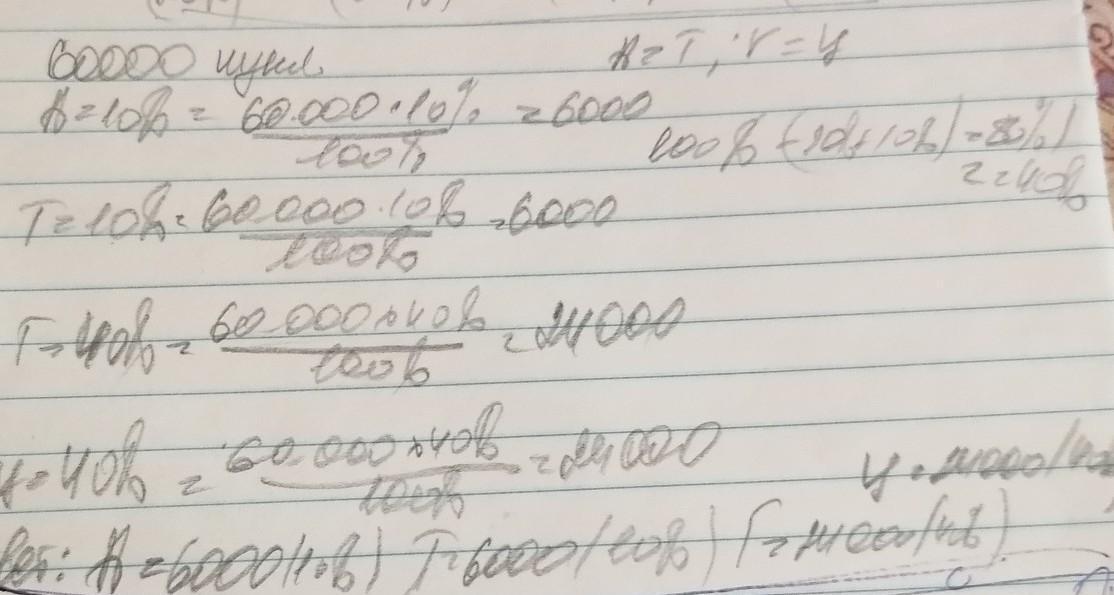 60000 нукл.
А=Т, Г=Ц
А=10% = 60.000·10% / 100% = 6000
100% - (10%+10%) = 80% /
2=40%
Т=10% = 60.000·10% / 100% = 6000
Г=40% = 60.000·40% / 100% = 24000
Ц=40% = 60.000·40% / 100% = 24000
Ц=24000/40
вет: А=6000(10%) Т=6000(10%) Г=24000(40%)